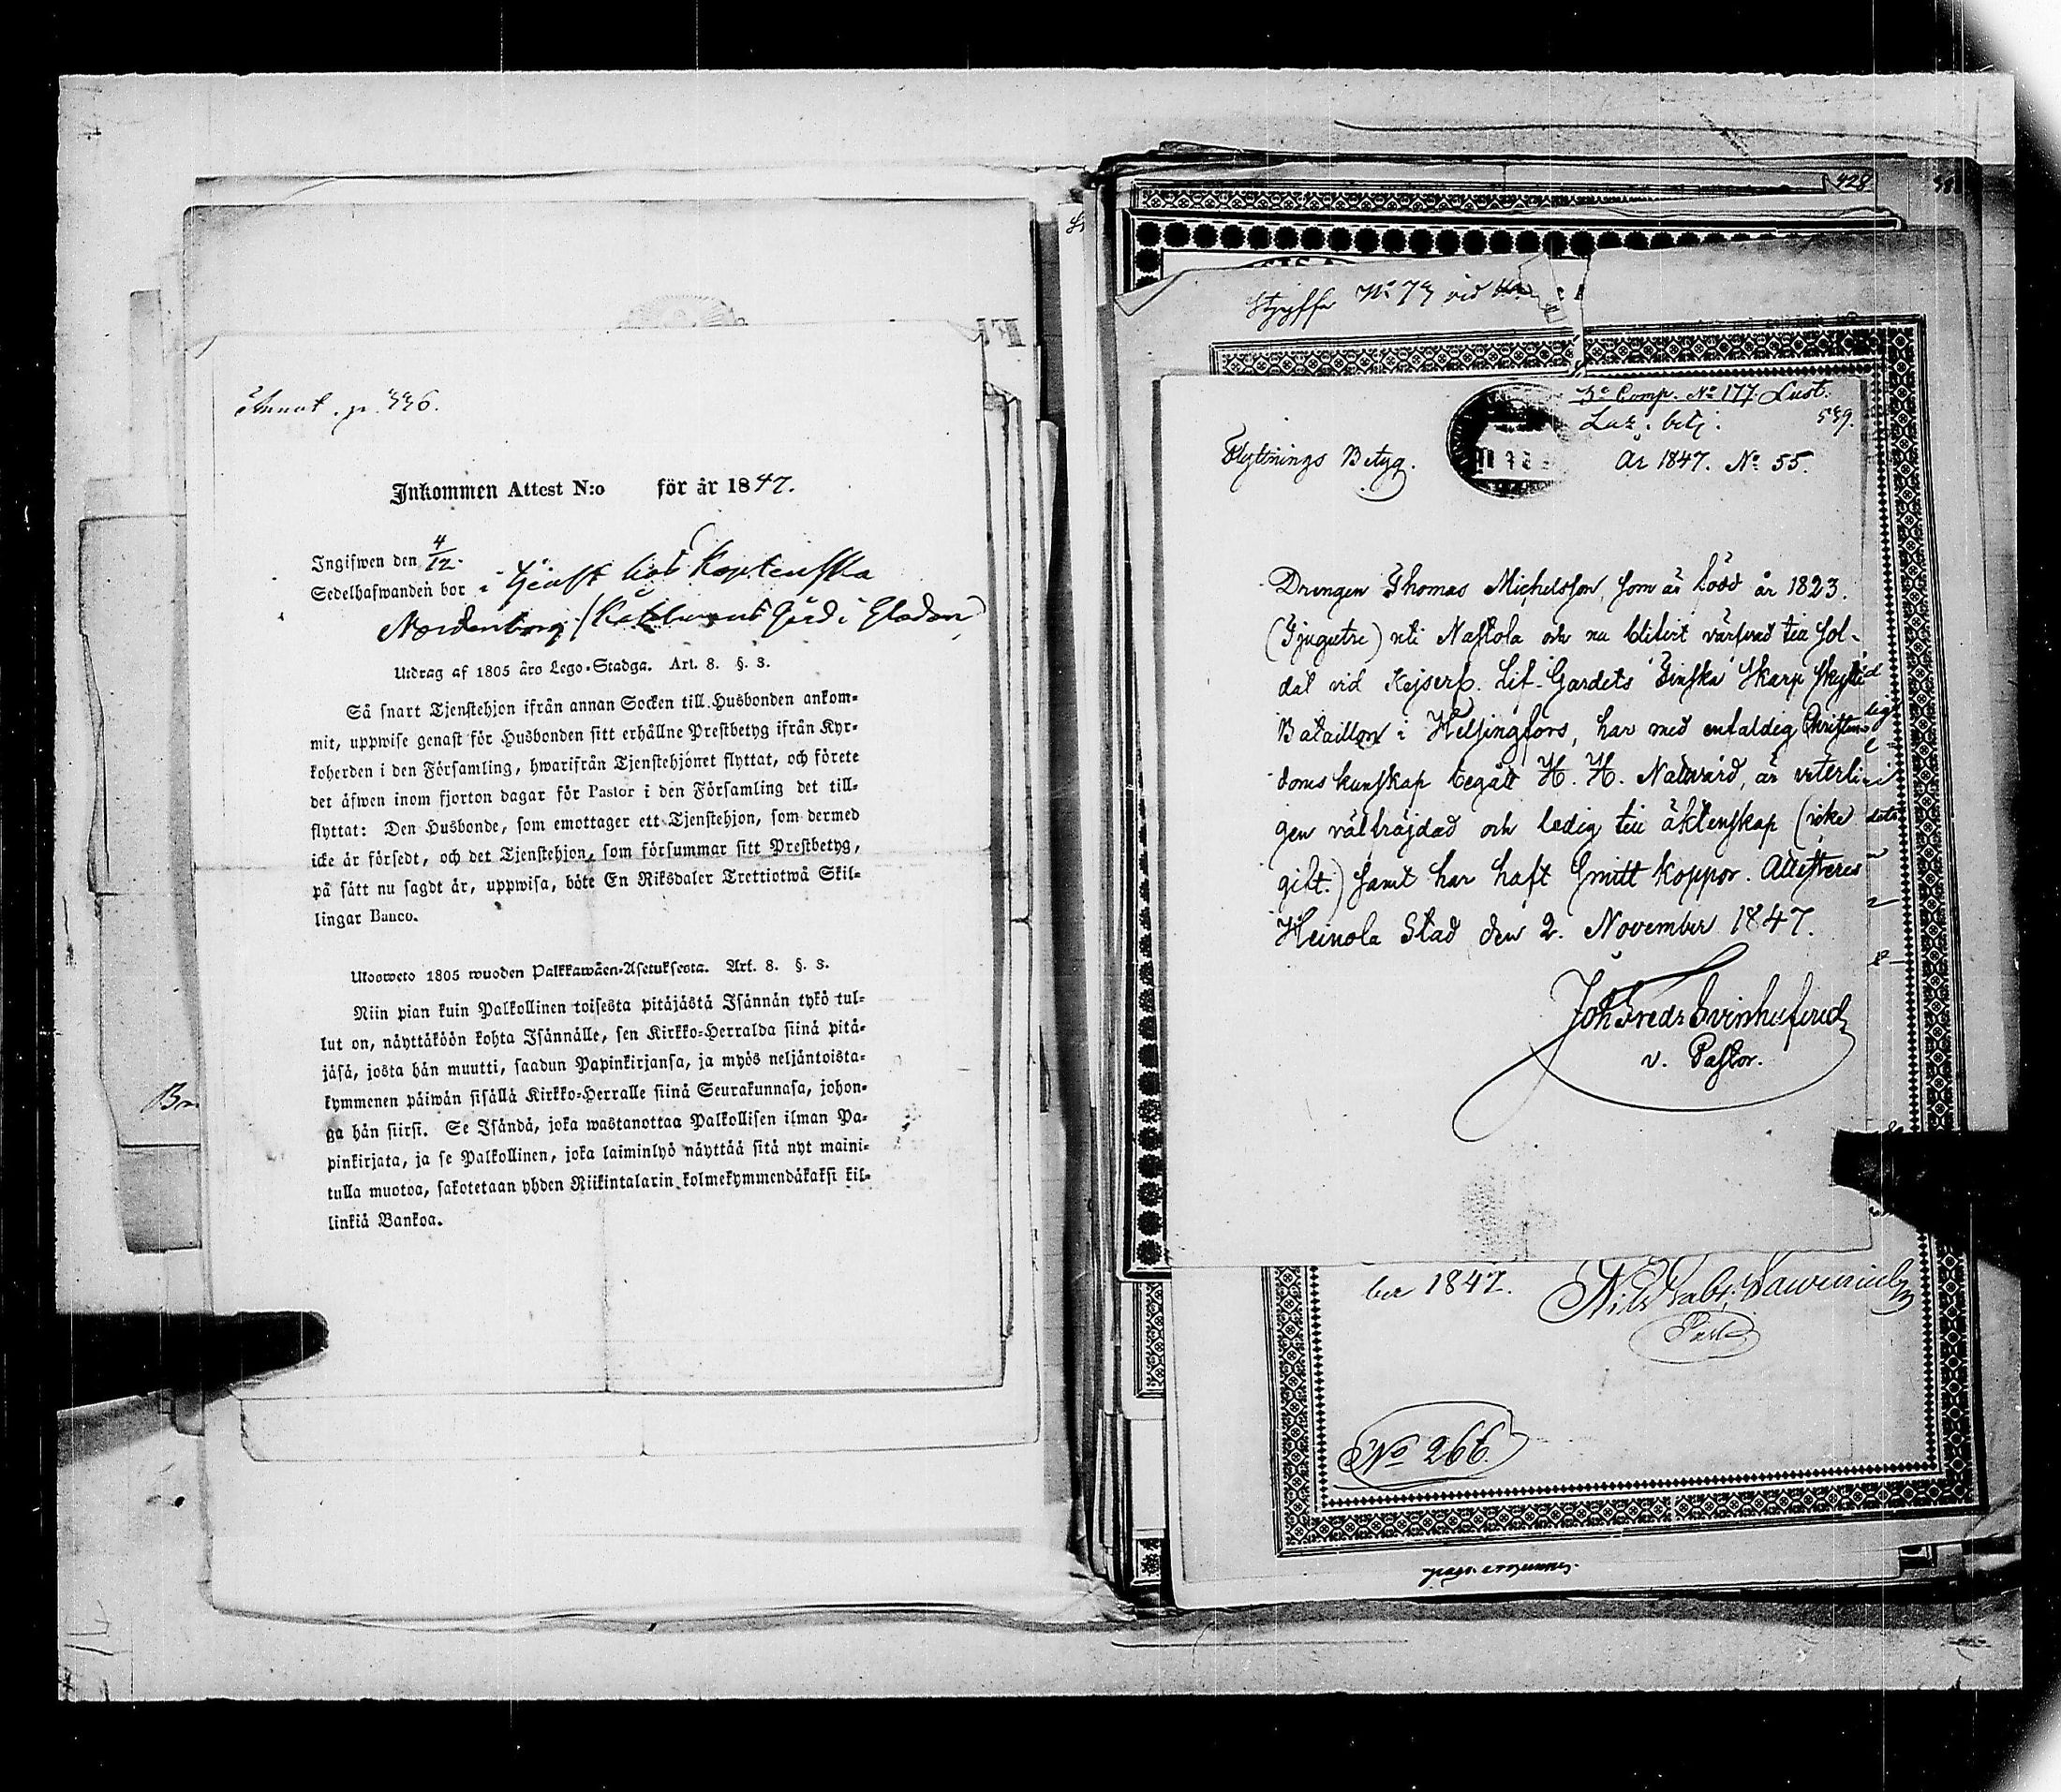 Annot. p. 336.
Inkommen Attest N:o för år 1847.
Ingifwen den 4/12.
Sedelhafwanden bor i tjenst hos Kaptenska
Nordenborg gård i Staden
Utdrag af 1805 åro Lego-Stadga. Art. 8. §. 3.
Så snart Tjenstehjon ifrån annan Socken till Husbonden ankom-
mit, uppwise genast för Husbonden sitt erhållne Prestbetyg ifrån Kyr-
koherden i den Församling, hwarifrån Tjenstehjonet flyttat, och förete
det äfwen inom fjorton dagar för Pastor i den Församling det till-
flyttat: Den Husbonde, som emottager ett Tjenstehjon, som dermed
icke är försedt, och det Tjenstehjon, som försummar sitt Prestbetyg,
på sätt nu sagdt är, uppwisa, böte En Riksdaler Trettiotwå Skil-
lingar Banco.
Ulosweto 1805 wuoden Palkkawäen-Asetuksesta. Art. 8. §. 3.
Niin pian kuin Palkollinen toisesta pitäjästä Isännän tykö tul-
lut on, näyttäköön kohta Isännälle, sen Kirkko-Herralda siinä pitä-
jäsä, josta hän muutti, saadun Papinkirjansa, ja myös neljäntoista-
kymmenen päiwän sisällä Kirkko-Herralle siinä Seurakunnasa, johon-
ga hän siirsi. Se Isändä, joka wastanottaa Palkollisen ilman Pa-
pinkirjata, ja se Palkollinen, joka laiminlyö näyttää sitä nyt maini-
tulla muotoa, sakotetaan yhden Riikintalarin kolmekymmendäkaksi kil-
linkiä Bankoa.
428
Styffe No 79 vid
3e Comp. No 177. Lust.
Laz. betj. 539.
Flyttnings Betyg. År 1847. No 55.
Drengen Thomas Michelsson, som är född år 1823.
(Tjugutre) uti Nastola och nu blifvit värfvad till sol-
dat vid Kejserl. Lif-Gardets Finska Skarp Skytte
Bataillon i Helsingfors, har med enfaldig Christen-
doms kunskap begått H. H. Nattvard, är veterli-
gen välfräjdad och ledig till äktenskap (icke
gift.) samt har haft Smitt koppor. Attesteres
Heinola Stad den 2. November 1847.
Joh Fredr Svinhufvud
v. Pastor.
ber 1847.
Past
No 266.